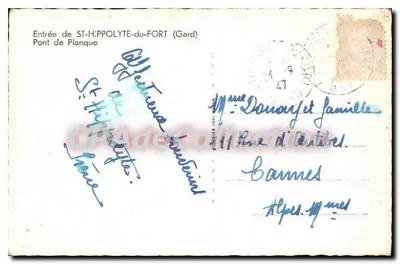 Entrée de ST-HIPPOLYTE-du-FORT (Gard)
Pont de Planque
4 -8
47
Affectueux souvenirs
de
St Hippolyte.
Irène
Mme Donary et famille
211 Rue d'Antibes
Cannes
Alpes Mmes